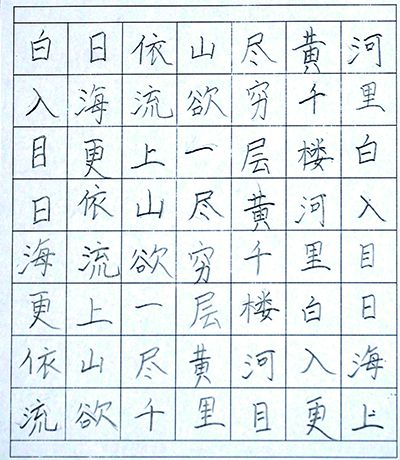 白日依山尽黄河
入海流欲穷千里
目更上一层楼白
日依山尽黄河入
海流欲穷千里目
更上一层楼白日
依山尽黄河入海
流欲千里目更上